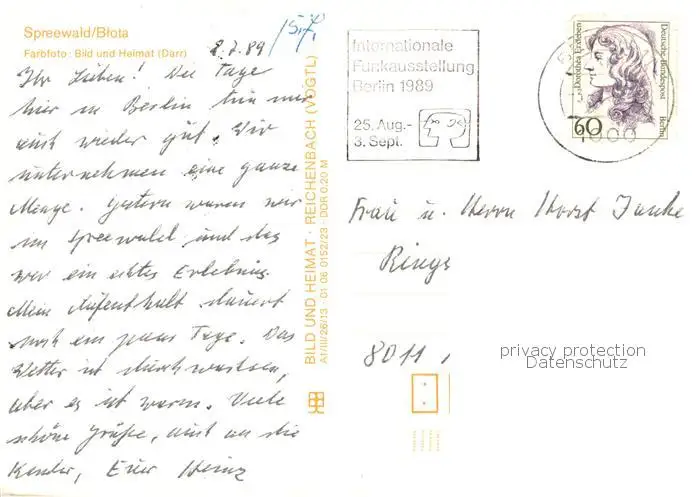 Spreewald/Błota
Farbfoto: Bild und Heimat (Darr)
2.7.89
15.7.
Ihr Lieben! Die Tage
hier in Berlin tun mir
auch wieder gut. Wir
unternehmen eine ganze
Menge. Gestern waren wir
im Spreewald und das
war ein echtes Erlebnis.
Mein Aufenthalt dauert
noch ein paar Tage. Das
Wetter ist durchwachsen,
aber es ist warm. Viele
schöne Grüße, auch an die
Kinder, Euer Heinz
BILD UND HEIMAT · REICHENBACH (VOGTL)
A1/III/26/13 · 01 06 0152/23 · DDR 0.20 M
Internationale
Funkausstellung
Berlin 1989
25. Aug.-
3. Sept.
Dorothea Erxleben
Deutsche Bundespost
Berlin
60
1000
Frau u. Herrn Horst
8011
privacy protection
Datenschutz